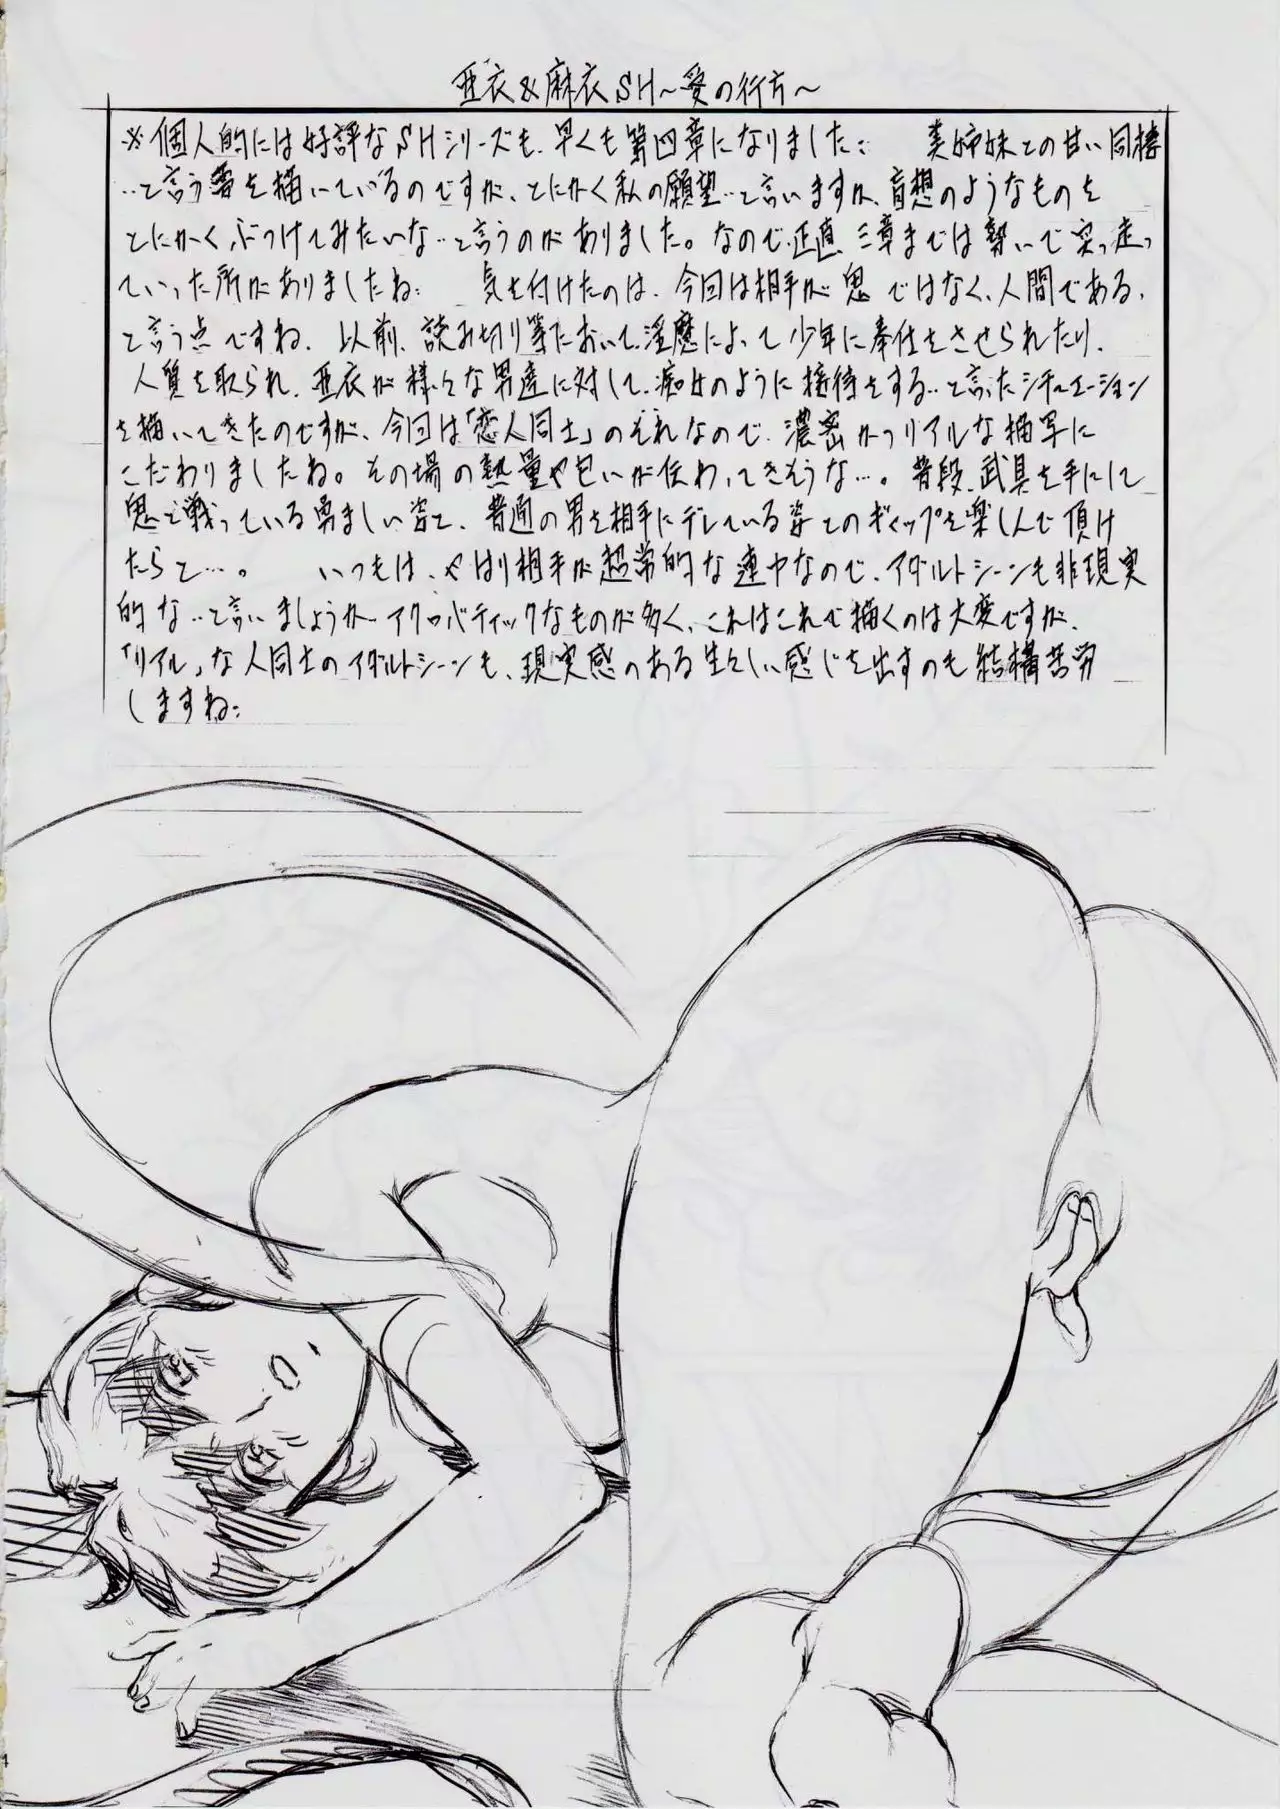 亜衣&麻衣SH~愛の行方~
※個人的には好評なSHシリーズも、早くも第四章になりました; 美姉妹との甘い同棲
‥と言う事を描いているのですが、とにかく私の願望‥と言いますか、妄想のようなものを
とにかくぶつけてみたいな‥と言うのがありました。なので、正直、三章までは勢いで突っ走っ
ていった所がありましたね; 気を付けたのは、今回は相手が鬼ではなく、人間である、
と言う点ですね、以前、読み切り等において、淫魔によって少年に奉仕をさせられたり、
人質を取られ、亜衣が様々な男達に対して、痴女のように接待をする‥と言ったシチュエーション
を描いてきたのですが、今回は「恋人同士」のそれなので、濃密かつリアルな描写に
こだわりましたね。その場の熱量や匂いが伝わってきそうな…。普段、武具を手にして
鬼と戦っている勇ましい姿と、普通の男を相手にデレている姿とのギャップを楽しんで頂け
たらと…。 いつもは、やはり相手が超常的な連中なので、アダルトシーンも非現実
的な‥と言いましょうか、アクロバティックなものが多く、これはこれで描くのは大変ですが、
「リアル」な人同士のアダルトシーンも、現実感のある生々しい感じを出すのも結構苦労
しますね;
4